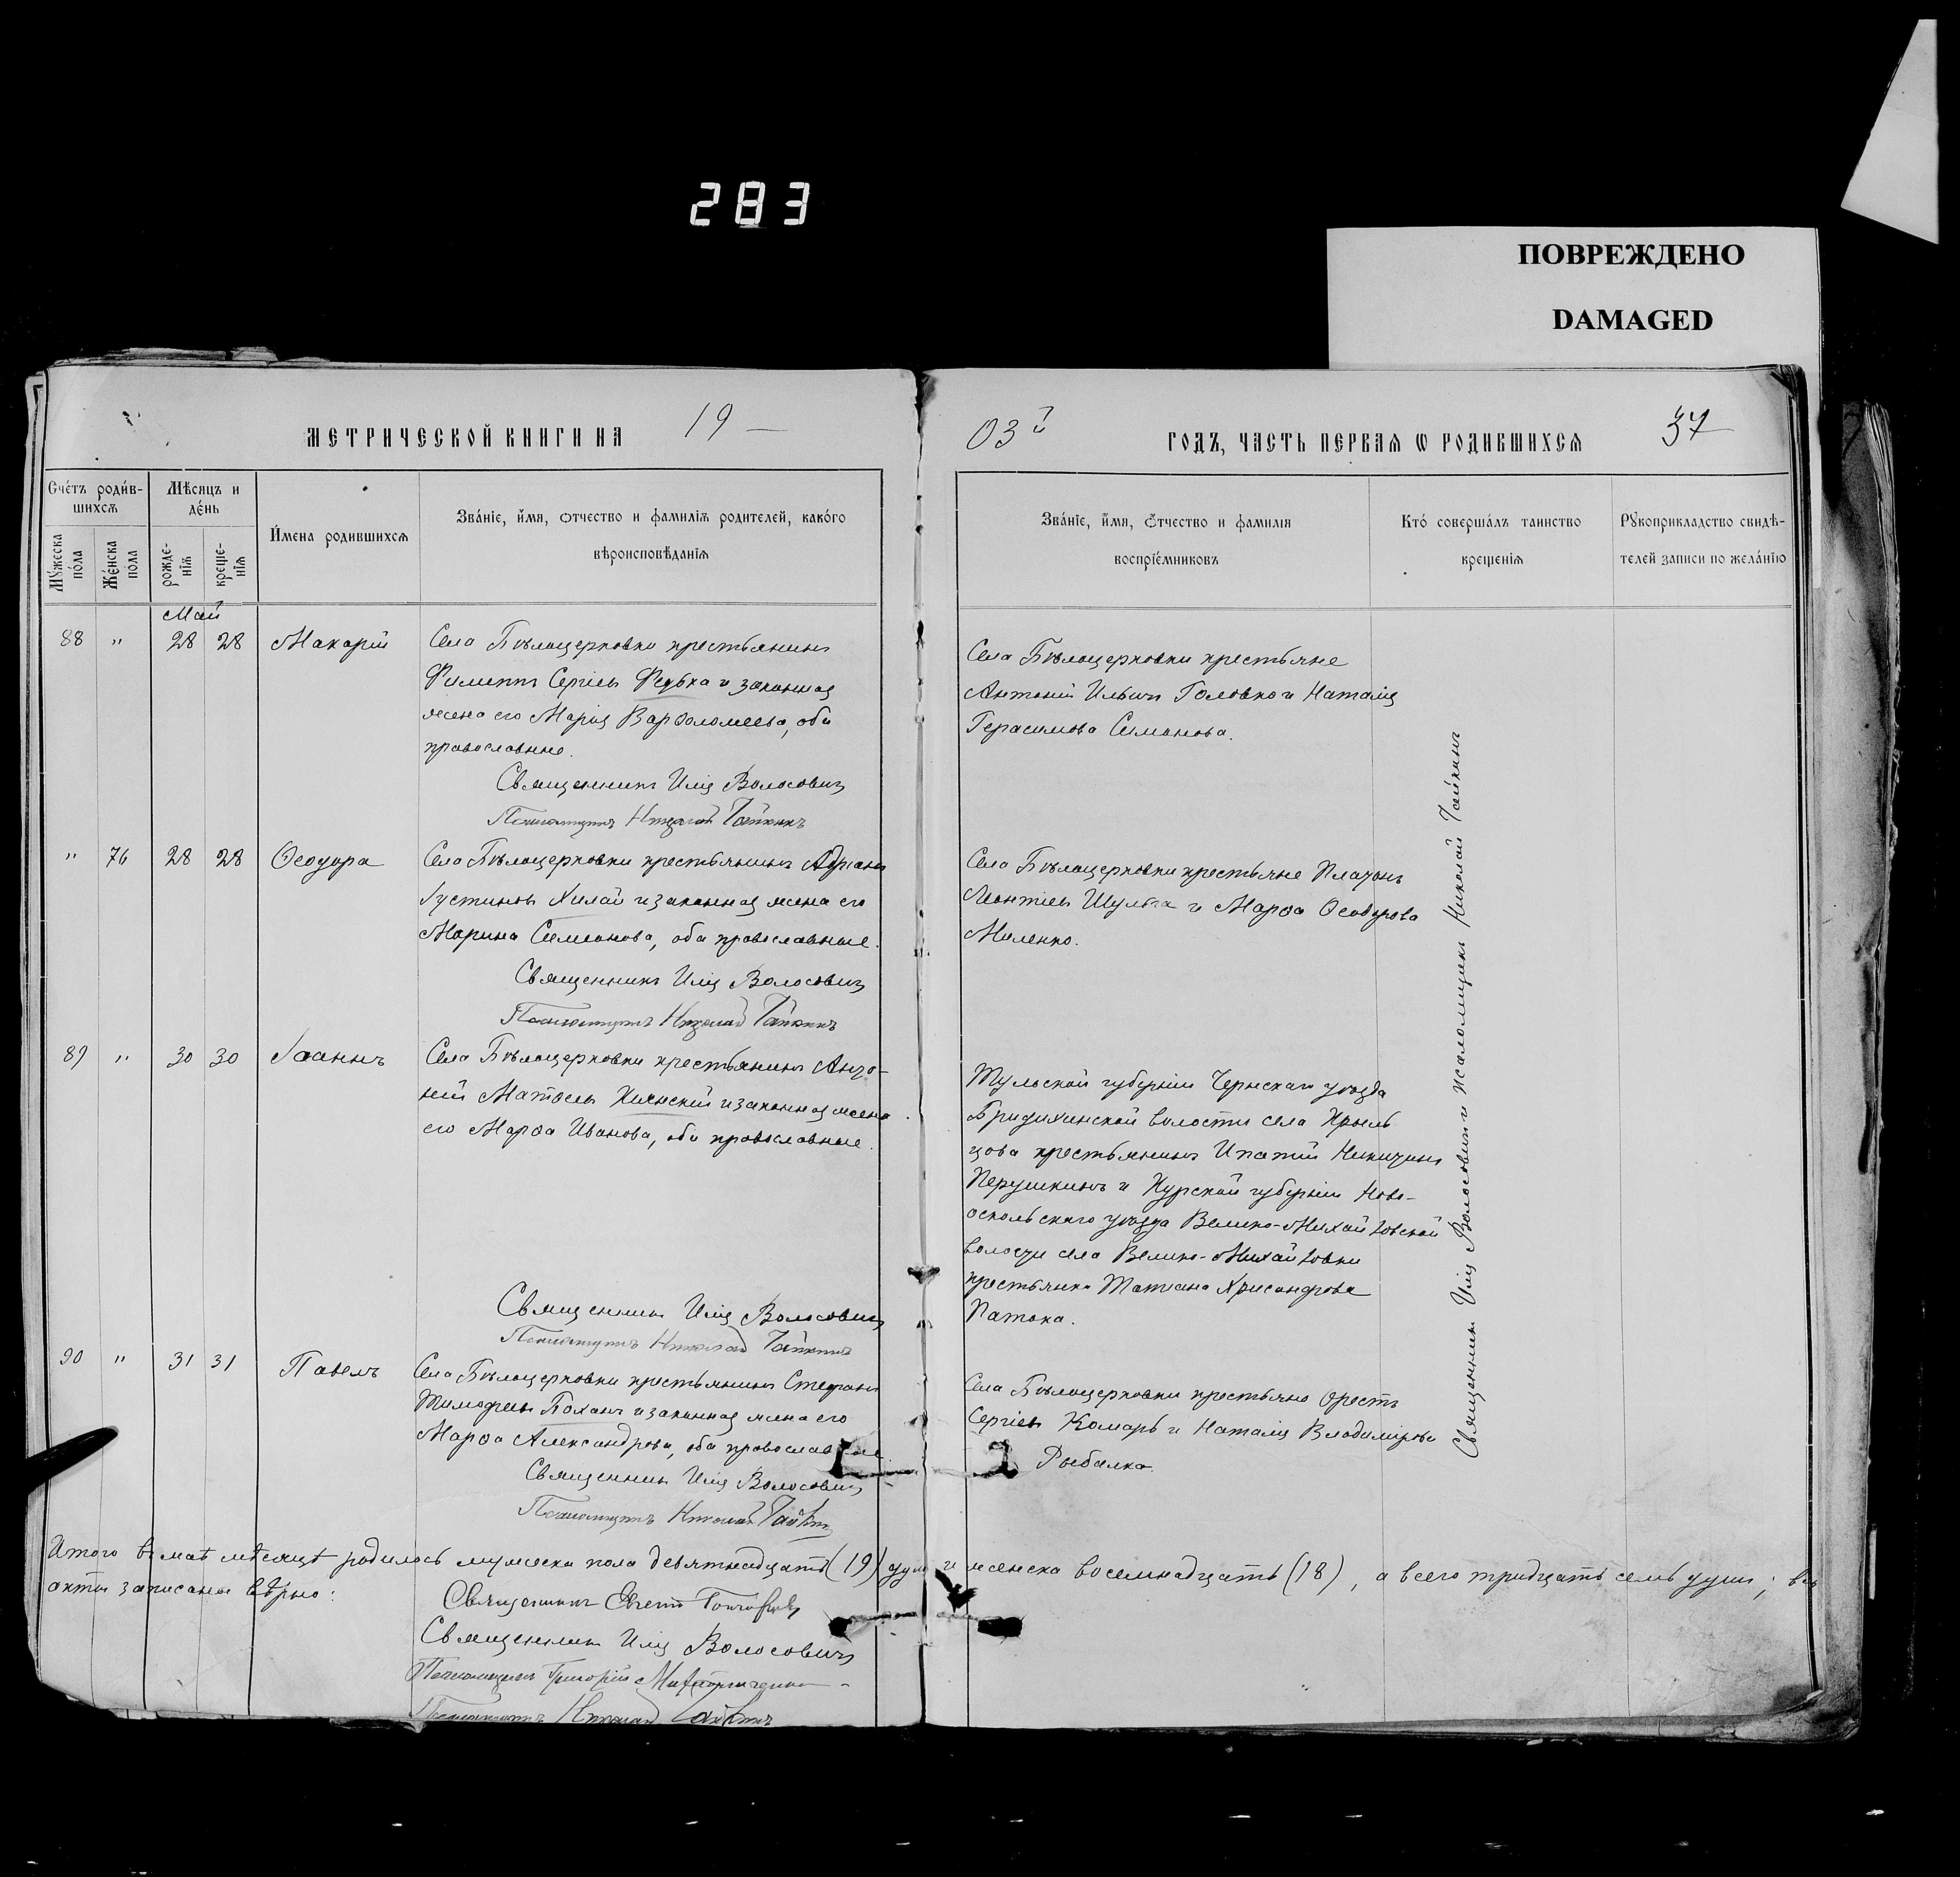 283
ПОВРЕЖДЕНО
DAMAGED
МЕТРИЧЕСКОЙ КНИГИ НА 19 —
03й ГОДЪ, ЧАСТЬ ПЕРВАЯ Ѡ РОДИВШИХСЯ 37
Сче́тъ роди́в-
шихсѧ
Мѣсяцъ и
де́нь
Мꙋжеска
по́ла
Же́нска
пола
рожде-
нїѧ
креще-
нїѧ
И́мена родившихсѧ
Зва́нїе, и́мя, ѻтчество и фамилїѧ родителей, како́го
вѣроисповѣ́данїѧ
Зва́нїе, и́мя, ѻ́тчество и фамилїѧ
воспрїе́мниковъ
Кто́ соверша́лъ таинство
крещенїѧ
Рꙋкоприкладство свидѣ-
телей записи по жела́нїю
Май
88 " 28 28 Макарій
Села Бѣлоцерковки крестьянинъ
Филиппъ Сергіевъ Федька и законная
жена его Марія Варѳоломеева, оба
православные.
Священникъ Илія Волосовичъ
Псаломщикъ Николай Чайкинъ
Села Бѣлоцерковки крестьяне
Антоній Ильинъ Головко и Наталія
Герасимова Симонова.
" 76 28 28 Ѳеодора
Села Бѣлоцерковки крестьянинъ Адріанъ
Іустиновъ Хилай и законная жена его
Марина Симеонова, оба православные.
Священникъ Илія Волосовичъ
Псаломщикъ Николай Чайкинъ
Села Бѣлоцерковки крестьяне Платонъ
Леонтіевъ Шульга и Марѳа Ѳеодорова
Миленко.
89 " 30 30 Іоаннъ
Села Бѣлоцерковки крестьянинъ Анто-
ній Матѳеевъ Хижнскій и законная жена
его Марѳа Иванова, оба православные.
Священникъ Илія Волосовичъ
Псаломщикъ Николай Чайкинъ
Тульской губерніи Чернскаго уѣзда
Бридихинской волости села Крыль
цова крестьянинъ Ипатій Никитинъ
Перушкинъ и Курской губерніи Ново-
оскольскаго уѣзда Велико-Михайловской
волости села Велико-Михайловки
крестьянка Татіана Хрисандрова
Патока.
90 " 31 31 Павелъ
Села Бѣлоцерковки крестьянинъ Стефанъ
Тимофеевъ Боханъ и законная жена его
Марѳа Александрова, оба православные
Священникъ Илія Волосовичъ
Псаломщикъ Николай Чайкинъ
Села Бѣлоцерковки крестьяне Орестъ
Сергіевъ Комаръ и Наталія Владимірова
Рыбалка.
Священникъ Илія Волосовичъ и псаломщикъ Николай Чайкинъ
Итого въ маѣ мѣсяцѣ родилось мужеска пола девятнадцать (19) душъ и женска восемнадцать (18), а всего тридцать семь душъ; все
акты записаны вѣрно:
Священникъ Евгеній
Священникъ Илія Волосовичъ
Псаломщикъ Григорій
Псаломщикъ Николай Чайкинъ